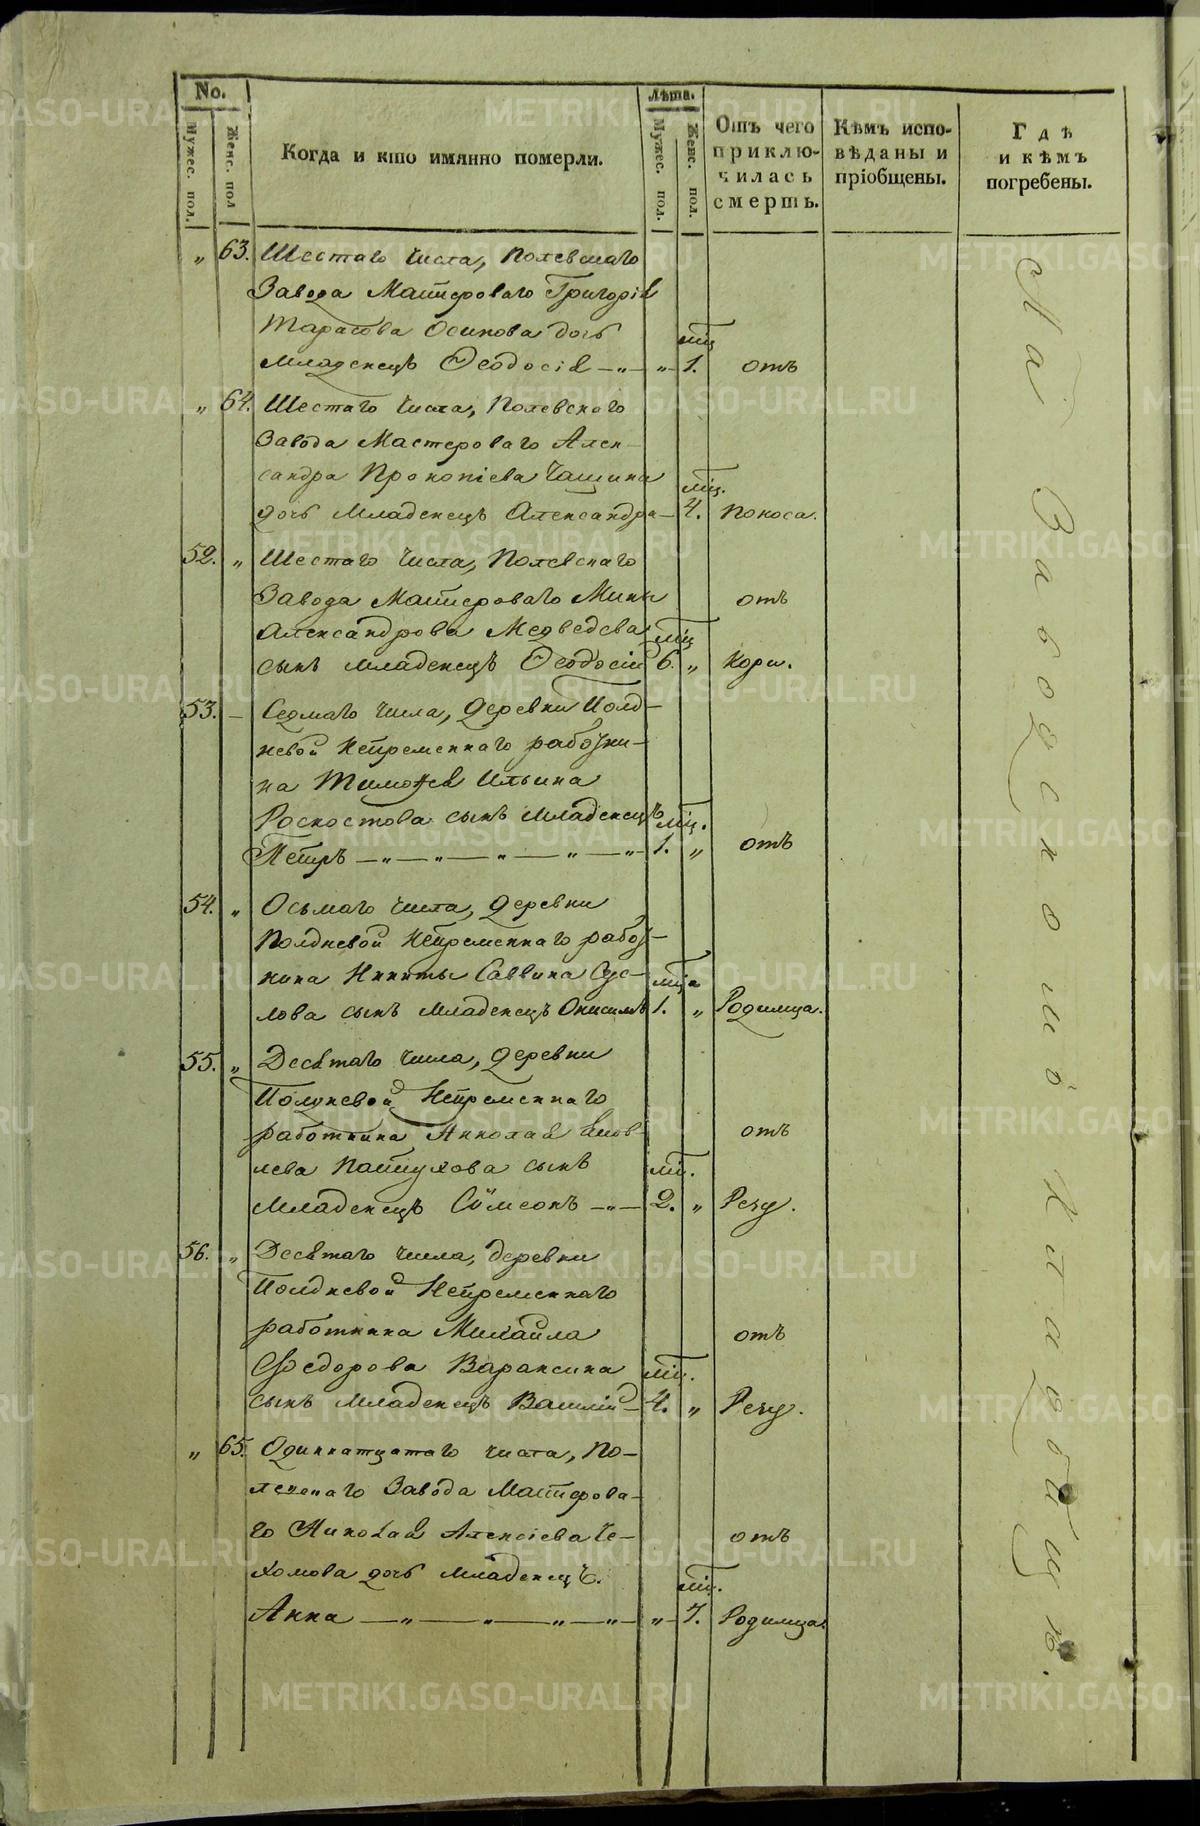 No.
Мужес. пол.
Женс. пол
Когда и кто имянно померли.
Лѣта.
Мужес. пол.
Женс. пол.
Отъ чего приклю-
чилась смерть.
Кѣмъ испо-
вѣданы и
пріобщены.
Гдѣ
и кѣмъ
погребены.
„ 63. Шестаго числа, Полевскаго
Завода Мастероваго Григорія
Тарасова Осипова дочь мѣц
младенецъ Ѳеодосія „ 1. отъ
„ 64. Шестаго числа, Полевскаго
Завода Мастероваго Алек-
сандра Прокопіева Чащина мѣц.
дочь Младенецъ Александра 4. поноса.
52. „ Шестаго числа, Полевскаго
Завода Мастероваго Мины отъ
Александрова Медведева мѣц
сынъ младенецъ Ѳеодосій 6. „ Кори.
53. — Седмаго числа, деревни Полд-
невой Непременнаго работни-
ка Тимоѳея Ильина
сынъ младенецъ мѣц.
Петръ — „ — „ — „ — „ — „ 1. „ отъ
54. „ Осьмаго числа, деревни
Полдневой Непременнаго работ-
ника Никиты Саввина Сус- мѣца
лова сынъ младенецъ Онисимъ 1. „ Родимца.
55. „ Десятаго числа, деревни
Полдневой Непременнаго
работника Николая Яков- отъ
лева Пастухова сынъ мѣц.
Младенецъ Сѵмеонъ — „ — 2. „ Резу.
56. „ Десятаго числа, деревни
Полдневой Непременнаго
работника Михайла отъ
Ѳедорова Вараксина мѣц.
сынъ младенецъ Василій 4. „ Резу.
„ 65. Одиннатцатаго числа, По-
левскаго Завода Мастерова-
го Николая Алексіева Че- отъ
хомова дочь младенецъ. мѣц.
Анна — „ — „ — „ — „ — „ 7. Родимца.
На Заводской Кладбищѣ.
METRIKI.GASO-URAL.RU